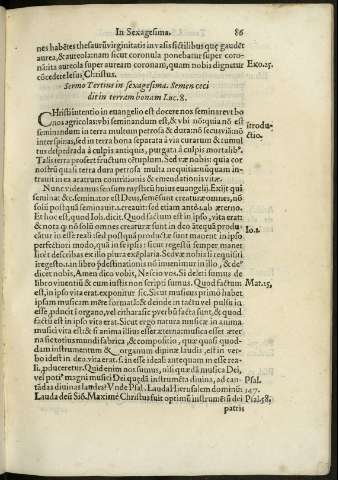 In Sexagesima. 86
nes habētes thesaurū virginitatis in vasis fictilibus quę gaudēt
aurea, & aureola: nam sicut coronula ponebatur super coro-
nā ita aureola super auream coronam, quam nobis dignetur Exo. 25.
cōcedere Iesus Christus.
Sermo Tertius in sexagesima. Semen ceci
dit in terram bonam Luc. 8.
CHristi intentio in euangelio est docere nos seminare vt bo
nos agricolas: vbi seminandum est, & vbi nō: quia nō est
seminandum in terra multum petrosa & dura: nō secus viā: nō
inter spinas, sed in terra bona separata à via curarum & tumul
tus despedrada à culpis antiquis, purgata à culpis mortalib⁹.
Talis terra profert fructum cētuplum. Sed væ nobis: quia cor
nostrū quasi terra dura petrosa multa nequitia: nūquam in
transit in ea aratrum contritionis & emendationis vitæ.
Introdu-
ctio.
Nunc videamus sensum mysticū huius euangelij. Exijt qui
seminat &c. seminator est Deus, semen sunt creaturæ omnes, nō
solū postquā seminauit. i. creauit: sed etiam anteà. ab æterno.
Et hoc est, quod Ioh. dicit. Quod factum est in ipso, vita erat: Io. 1.
& nota q̃ nō solū omnes creaturæ sunt in deo ātequā produ-
cātur in esse reali: sed postquā productę sunt manent in ipso
perfectiori modo, quā in seipsis: sicut regestū semper manet
licet describas ex illo plura exēplaria. Sed væ nobis si requisiti
i regesto. i. in libro p̃destinationis nō inuenimur in illo, & de⁹
dicet nobis, Amen dico vobis, Nescio vos. Si deleti sumus de
libro viuentiū & cum iustis non scripti sumus. Quod factum Mat. 25,
est, in ipso vita erat. exponitur sic. Quod musicus primò habet
ipsam musicam in mēte formatā: & deinde in tactu vel pulsu ip
esse, p̃ducit i organo, vel citharæ sic p̃ verbū facta sunt, & quod
factū est in ipso vita erat. Sicut ergo natura musicæ in anima
musici vita est: & si anima illius esset æterna: musica esset æter
na sic totius mundi fabrica, & compositio, quæ quasi quod-
dam instrumentum & organum diuinæ laudis, est in ver-
bo id est in deo vita erat. s. in esse ideali antequam in esse rea-
li. p̃duceretur. Quid enim nos sumus, nisi quædā musica Dei,
vel poti⁹ magni musici Dei quędā instrumēta diuina, ad can- Psal.
tādas diuinas laudes? Vnde Psal. Lauda Hierusalem dominū: 147.
Lauda deū Siō. Maximè Christus fuit optimū instrumētū dei Psal. 58,
patris